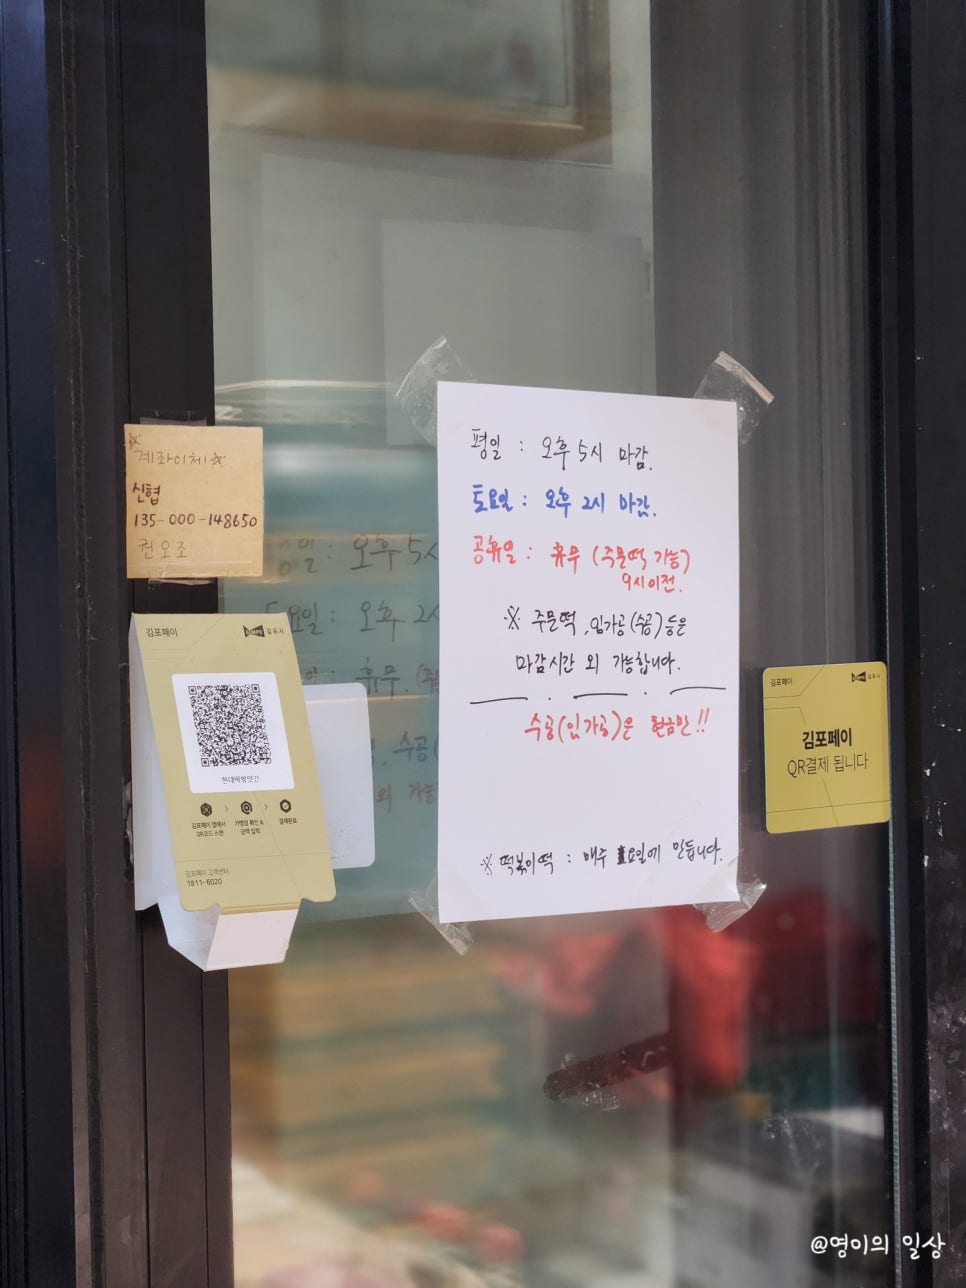 ※계좌이체※
신협
135-000-148650
권오조
김포페이
김포시
현대떡방앗간
김포페이 앱에서
QR코드 스캔
가맹점 확인 &
금액 입력
결제완료
김포페이 고객센터
1811-6020
평일 : 오후 5시 마감.
토요일 : 오후 2시 마감.
공휴일 : 휴무 (주문떡 가능)
9시이전.
※ 주문떡, 임가공(수공)등은
마감시간 외 가능합니다.
수공(임가공)은 현금만!!
※ 떡볶이떡 : 매주 요일에 만듭니다.
김포페이
김포시
김포페이
QR결제 됩니다
@영이의 일상